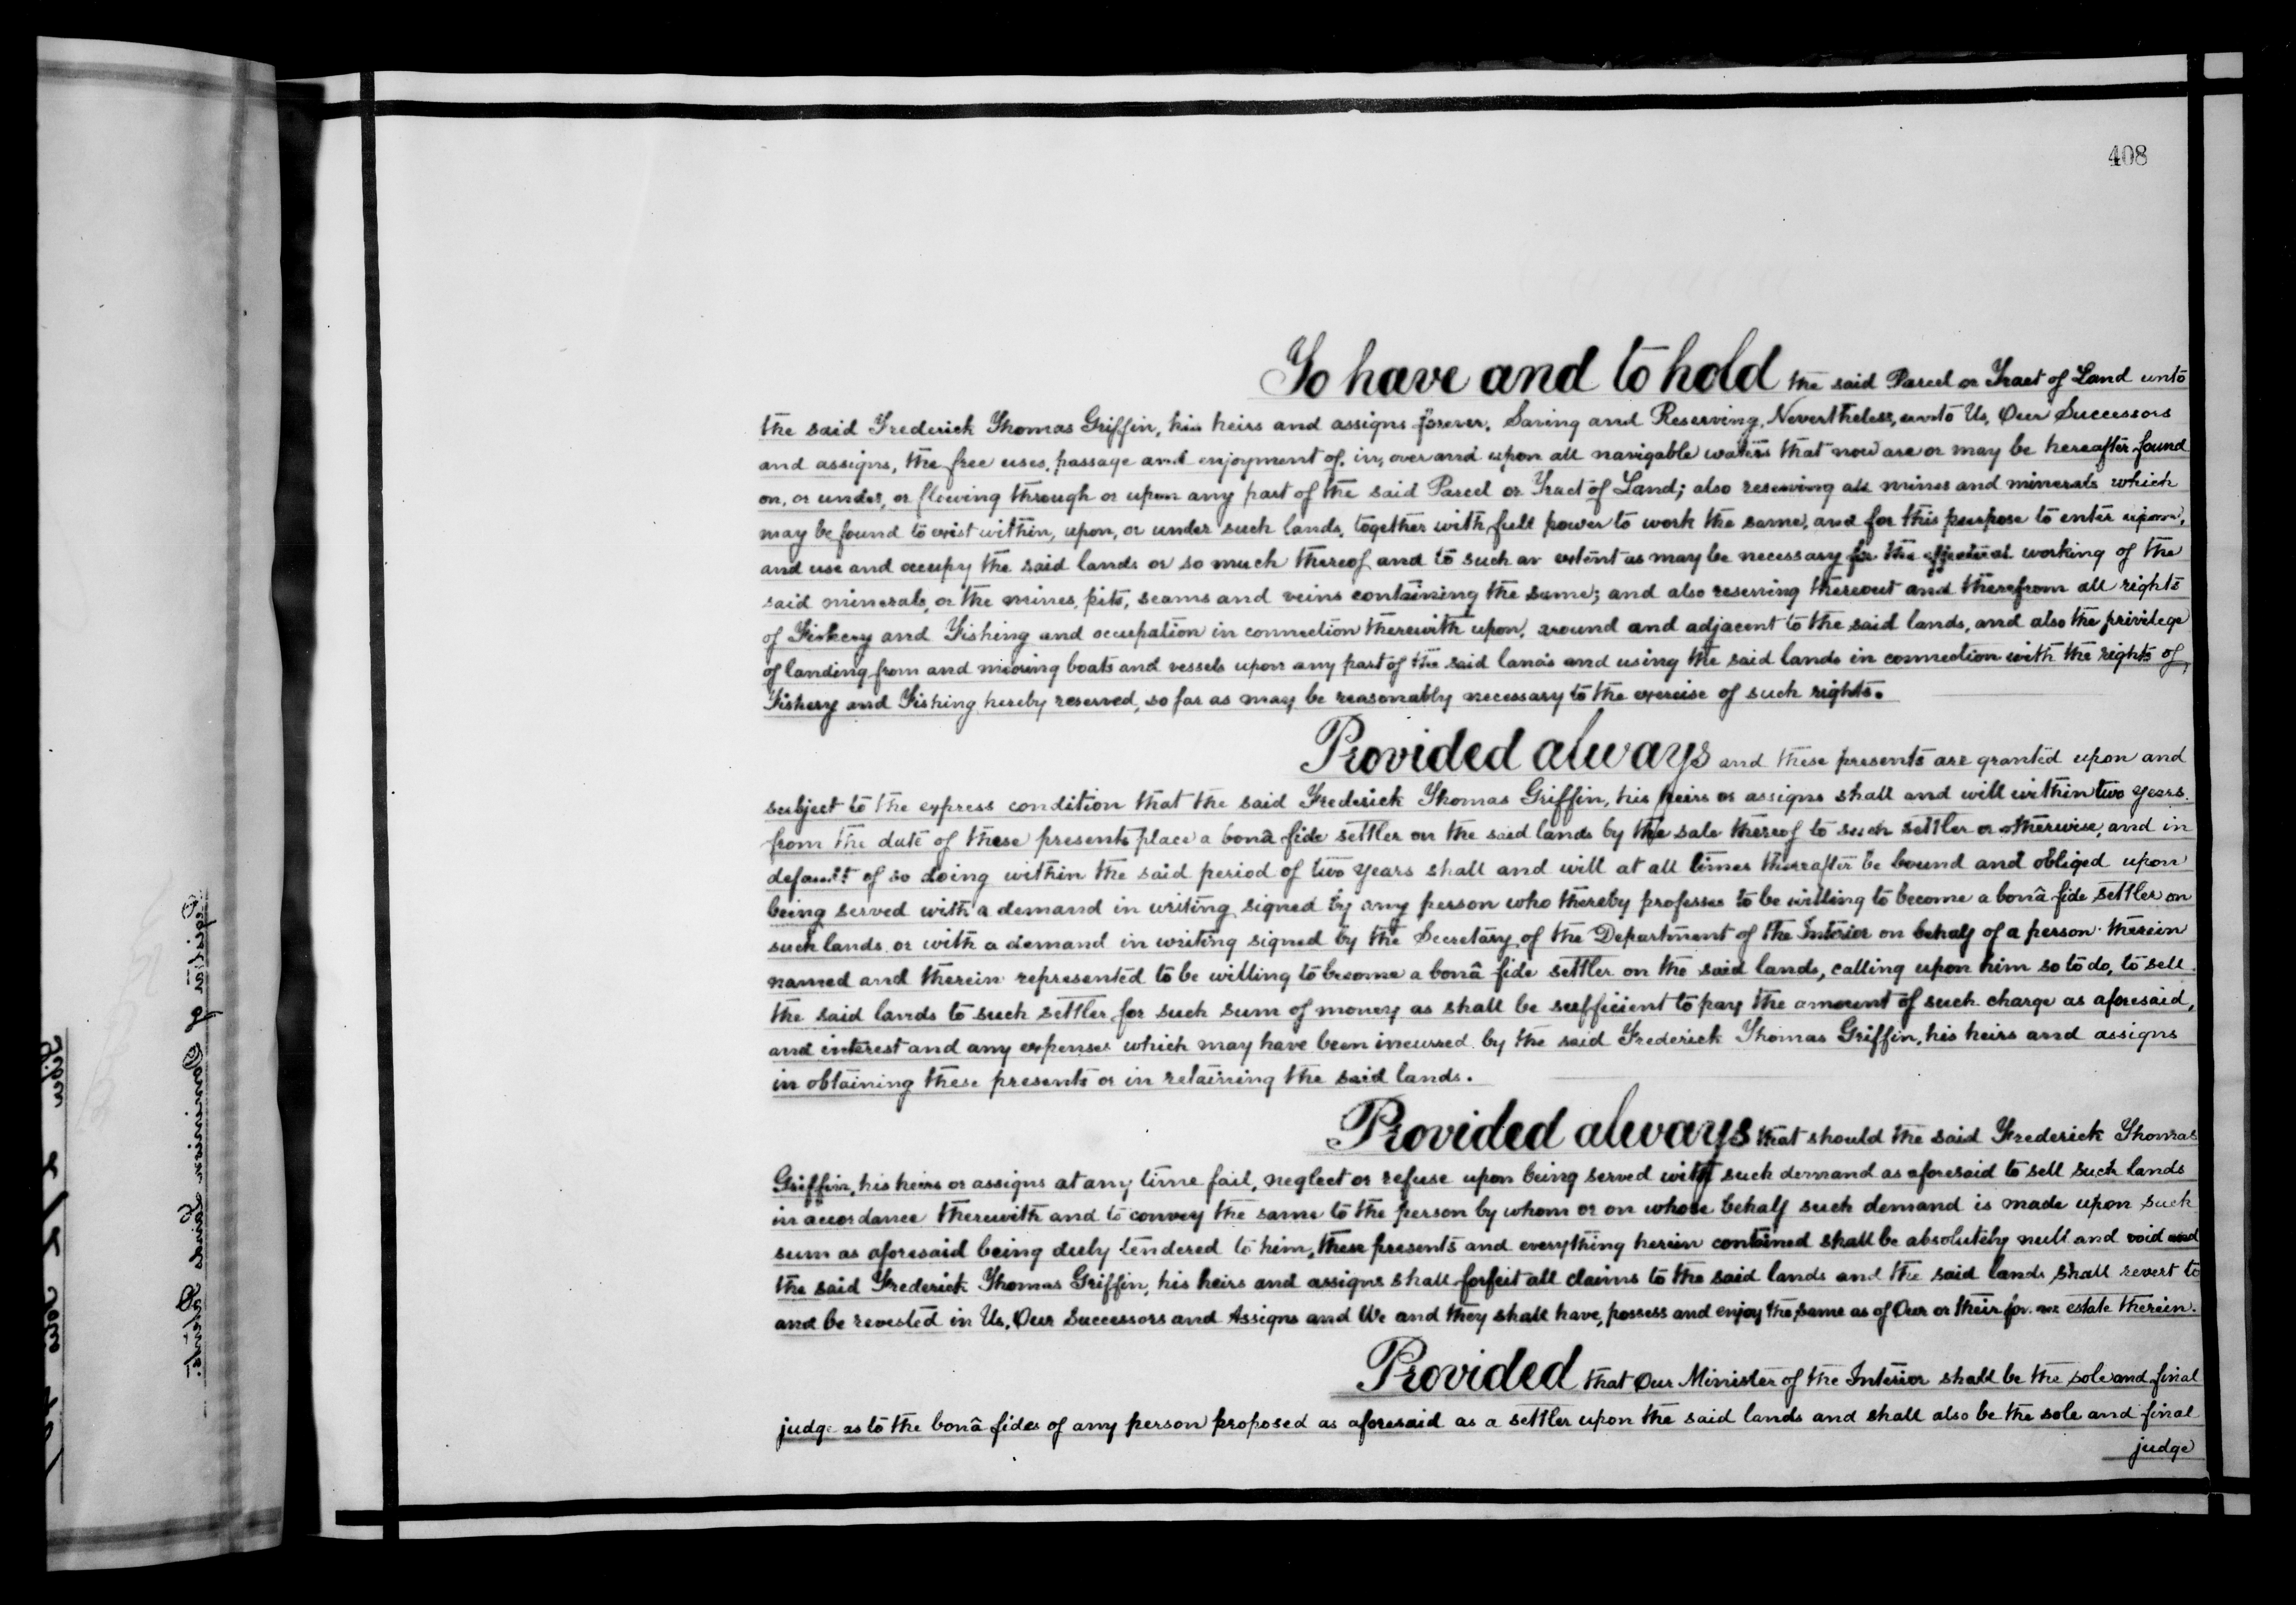 408
To have and to hold the said Parcel or Tract of Land unto
the said Frederick Thomas Griffin, his heirs and assigns forever. Saving and Reserving, Nevertheless, unto Us, Our Successors
and assigns, the free uses, passage and enjoyment of, in, over and upon all navigable waters that now are or may be hereafter found
on, or under, or flowing through or upon any part of the said Parcel or Tract of Land; also reserving all mines and minerals which
may be found to exist within, upon, or under such lands, together with full power to work the same, and for this purpose to enter upon,
and use and occupy the said lands or so much thereof and to such an extent as may be necessary for the effectual working of the
said minerals, or the mines, pits, seams and veins containing the same; and also reserving thereout and therefrom all rights
of Fishery and Fishing and occupation in connection therewith upon, around and adjacent to the said lands, and also the privilege
of landing from and mooring boats and vessels upon any part of the said lands and using the said lands in connection with the rights of
Fishery and Fishing hereby reserved, so far as may be reasonably necessary to the exercise of such rights.
Provided always and these presents are granted upon and
subject to the express condition that the said Frederick Thomas Griffin, his heirs or assigns shall and will within two years
from the date of these presents place a bonâ fide settler on the said lands by the sale thereof to such settler or otherwise, and in
default of so doing within the said period of two years shall and will at all times thereafter be bound and obliged upon
being served with a demand in writing signed by any person who thereby professes to be willing to become a bonâ fide settler on
such lands or with a demand in writing signed by the Secretary of the Department of the Interior on behalf of a person therein
named and therein represented to be willing to become a bonâ fide settler on the said lands, calling upon him so to do, to sell
the said lands to such settler for such sum of money as shall be sufficient to pay the amount of such charge as aforesaid,
and interest and any expenses which may have been incurred by the said Frederick Thomas Griffin, his heirs and assigns
in obtaining these presents or in retaining the said lands.
Provided always that should the said Frederick Thomas
Griffin, his heirs or assigns at any time fail, neglect or refuse upon being served with such demand as aforesaid to sell such lands
in accordance therewith and to convey the same to the person by whom or on whose behalf such demand is made upon such
sum as aforesaid being duly tendered to him, these presents and everything herein contained shall be absolutely null and void and
the said Frederick Thomas Griffin, his heirs and assigns shall forfeit all claims to the said lands and the said lands shall revert to
and be revested in Us, Our Successors and Assigns and We and they shall have, possess and enjoy the same as of Our or their estate therein.
Provided that Our Minister of the Interior shall be the sole and final
judge as to the bonâ fides of any person proposed as aforesaid as a settler upon the said lands and shall also be the sole and final
judge
Register of Dominion Lands Patents.